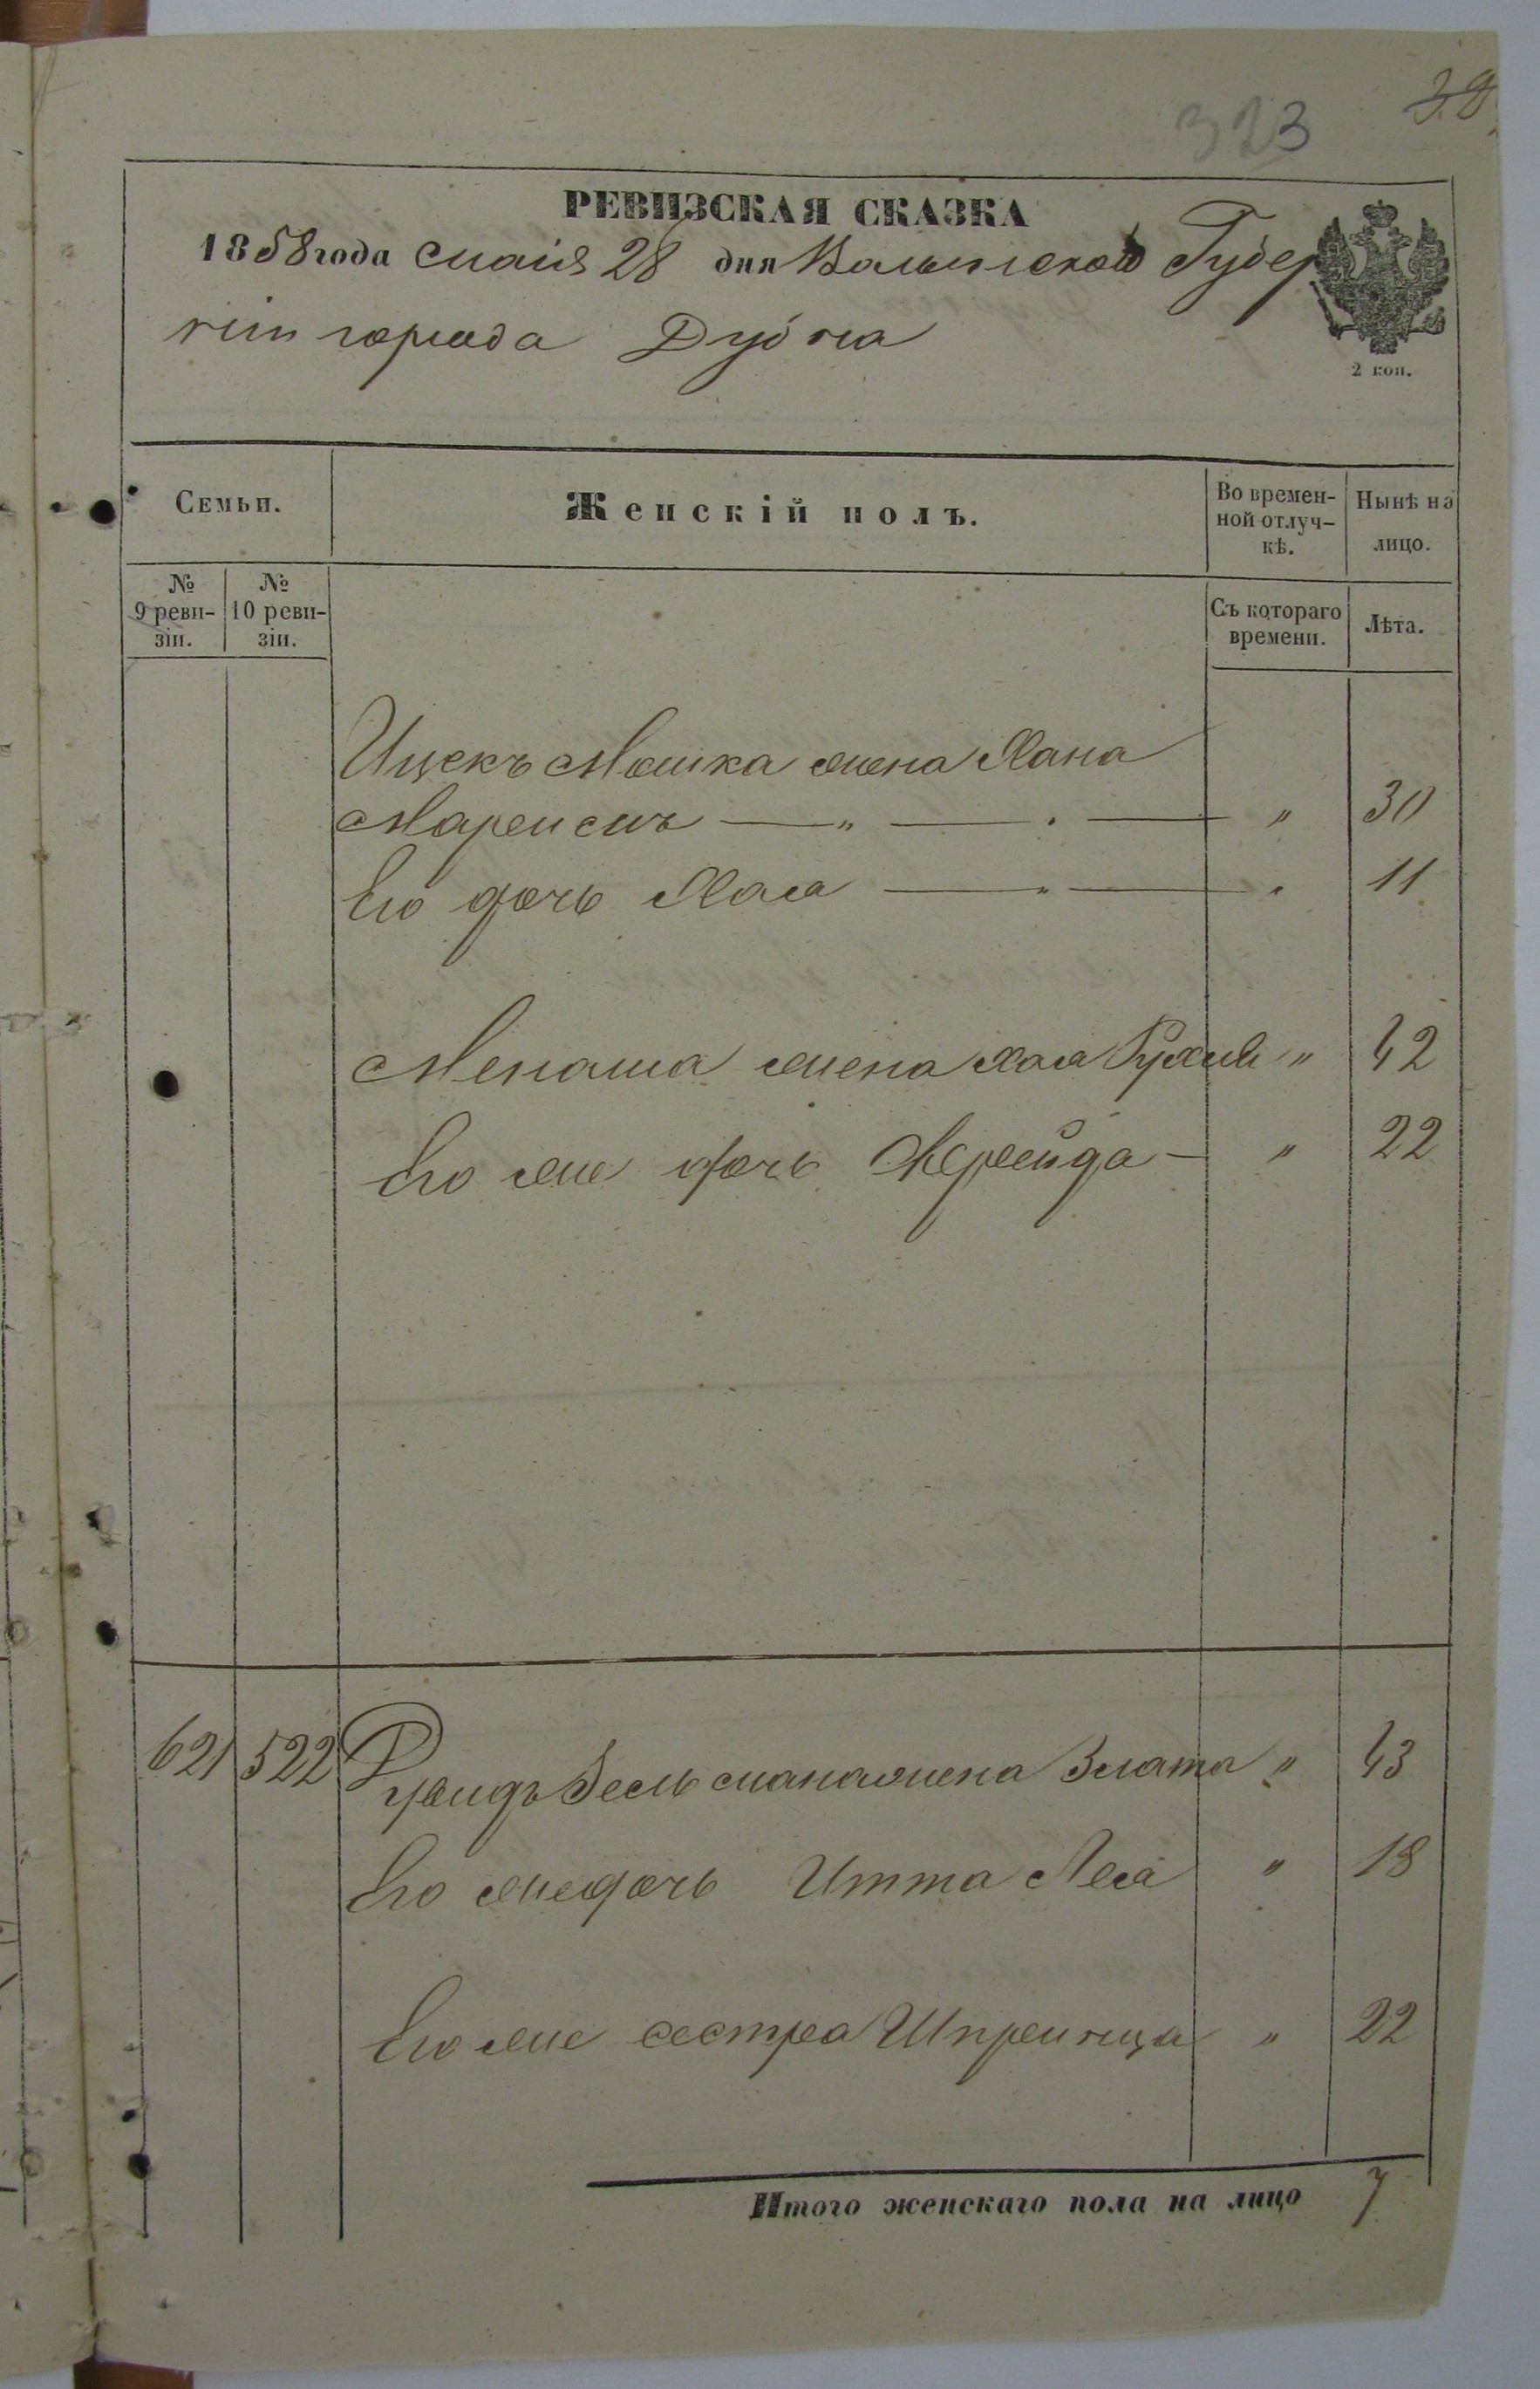 323
39
РЕВИЗСКАЯ СКАЗКА
1858 года маія 28 дня Волынской Губер
ніи города Дубна
2 коп.
Семьи.
Женскій полъ.
Во времен-
ной отлуч-
кѣ.
Нынѣ на
лицо.
№
9 реви-
зіи.
№
10 реви-
зіи.
Съ котораго
времени.
Лѣта.
Ицекъ Мошка жена Хана
— „ — . — „ 30
Его дочь Хая — „ — „ 11
Менаша жена Хая „ 42
Его же дочь „ 22
621 522 жена Злата „ 43
Его же дочь Итта Лея „ 18
Его же сестра Шпринца „ 22
Итого женскаго пола на лицо 7